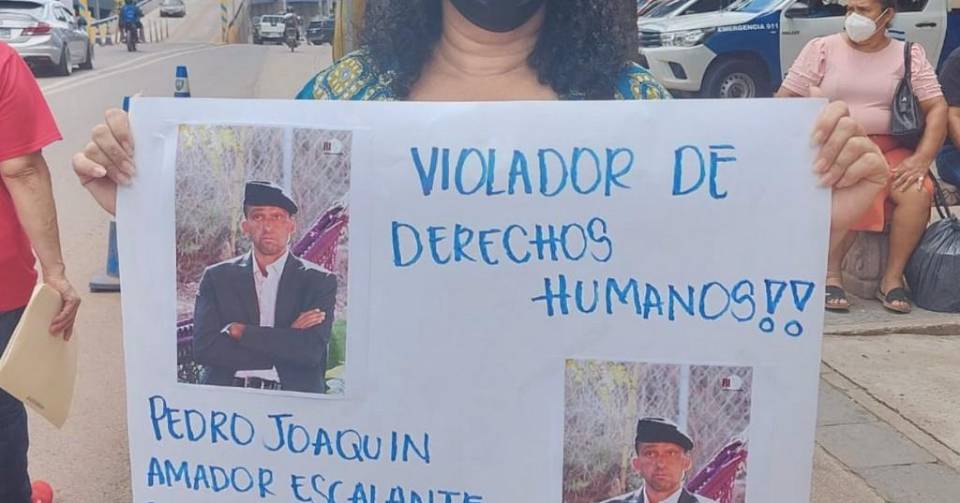 EMERGENCIA 911
VIOLADOR DE
DERECHOS
HUMANOS!!
PEDRO JOAQUIN
AMADOR ESCALANTE